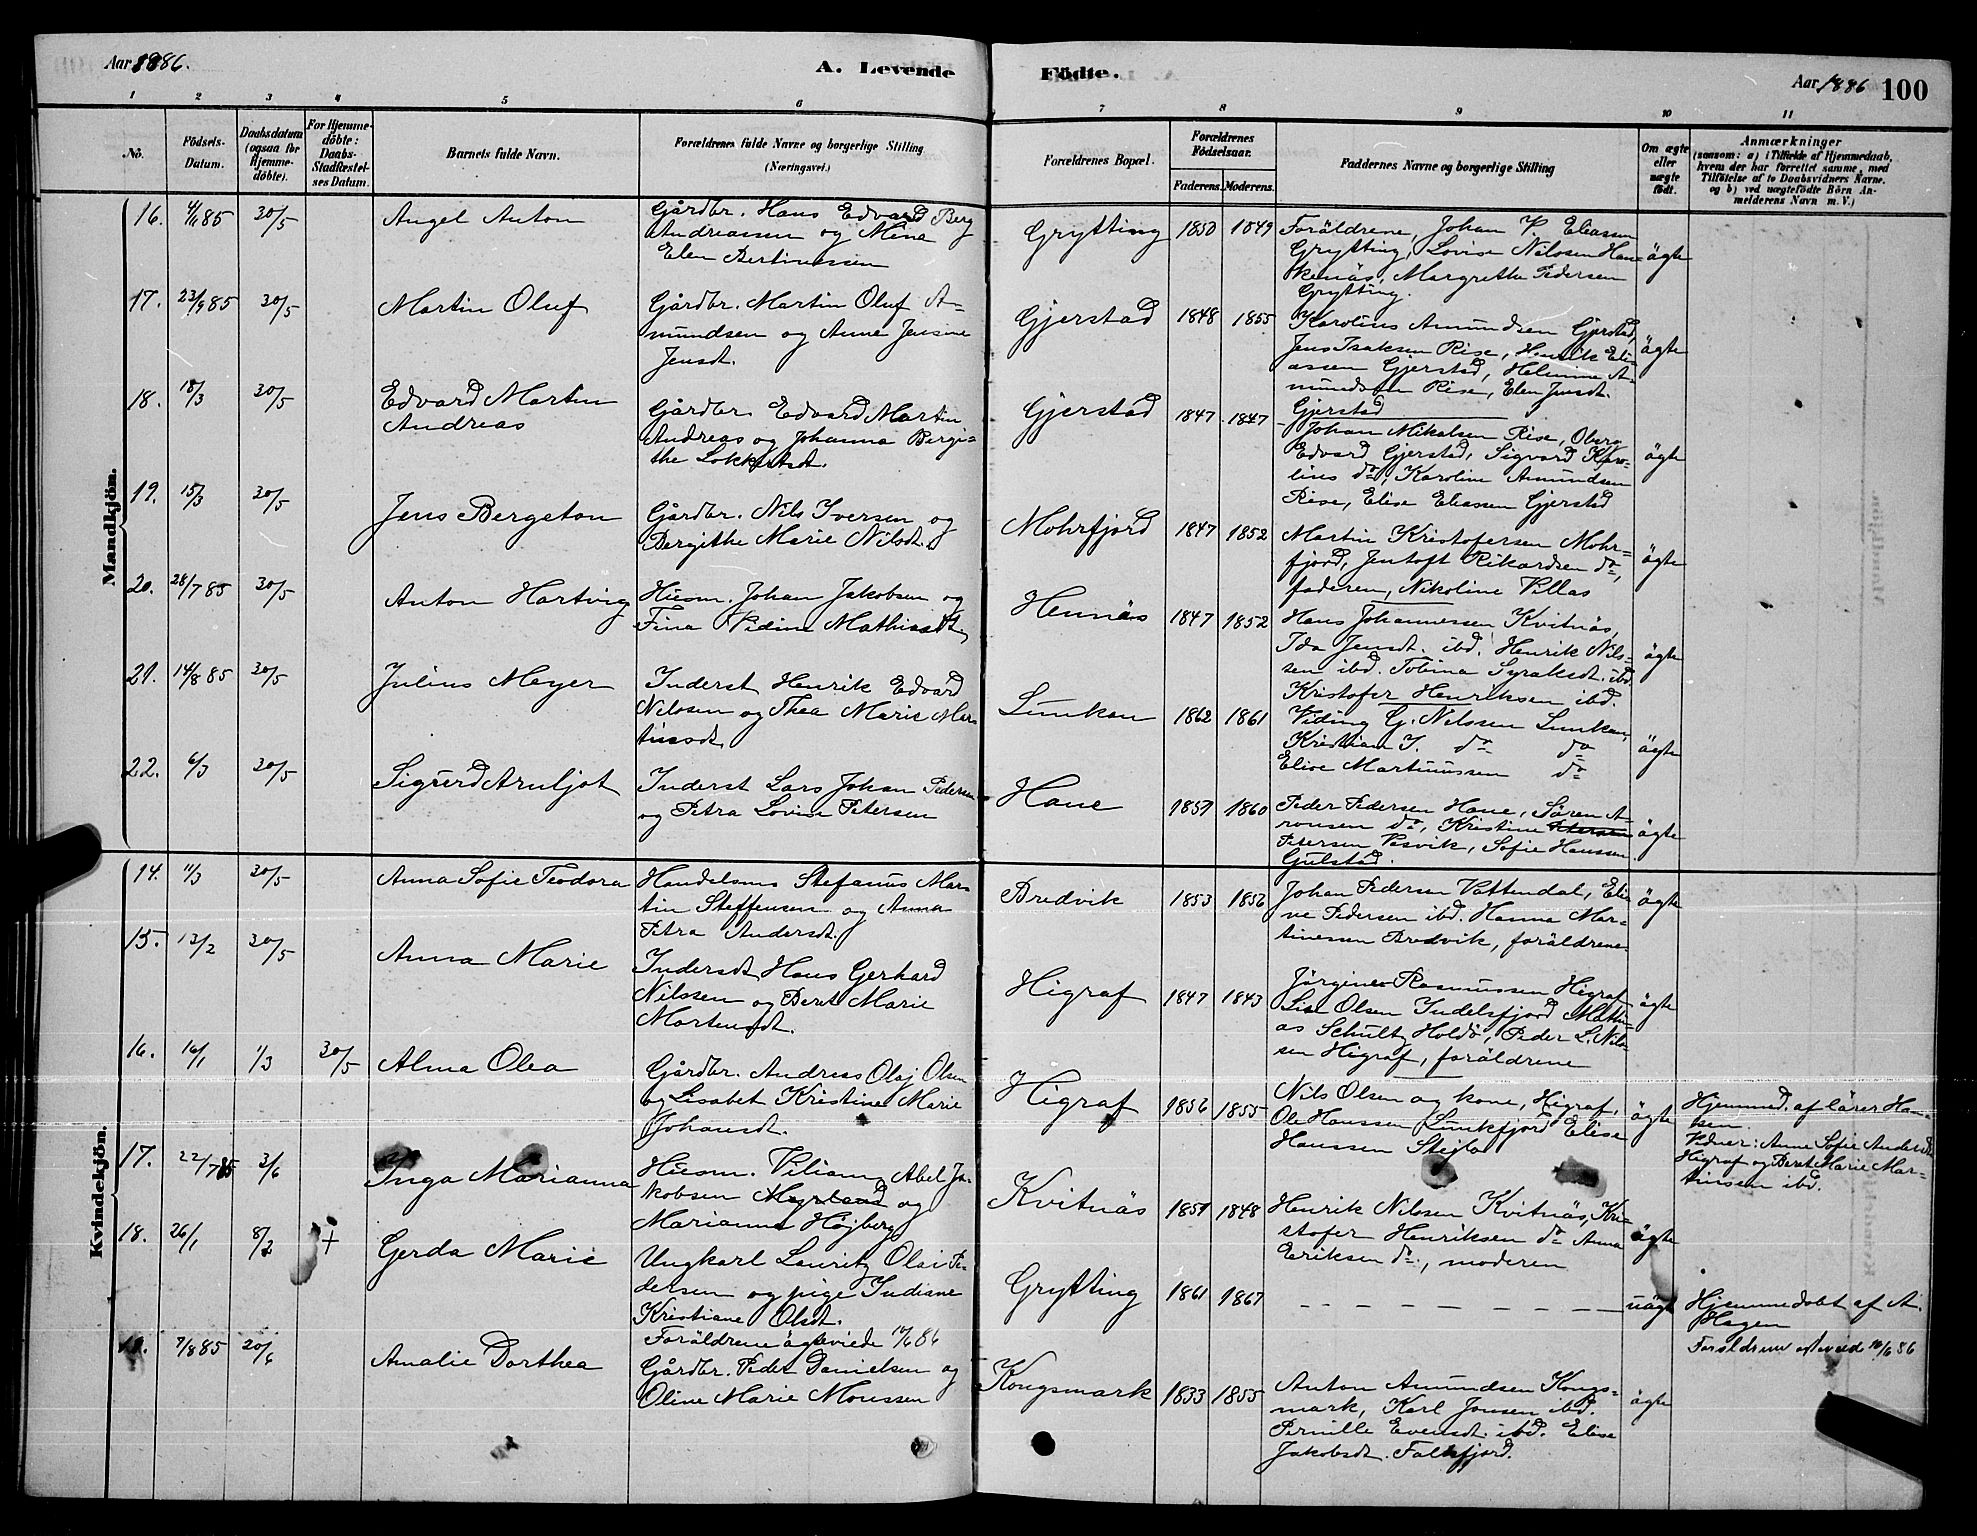 Aar 1886.
A. Levende
Födte.
Aar 1886 100
1 2 3 4 5 6 7 8 9 10 11
No.
Födsels-
Datum.
Daabsdatum
(ogsaa for
Hjemme-
döbte).
For Hjemme-
döbte:
Daabs-
Stadfæstel-
ses Datum.
Barnets fulde Navn.
Forældrenes fulde Navne og borgerlige Stilling
(Næringsvei.)
Forældrenes Bopæl.
Forældrenes
Födselsaar.
Faderens. Moderens.
Faddernes Navne og borgerlige Stilling
Om ægte
eller
uægte
födt.
Anmærkninger
(saasom: a) i Tilfælde af Hjemmedaab,
hvem der har forrettet samme, med
Tilföielse af to Daabsvidners Navne,
og b) ved uægtefödte Börn An-
melderens Navn m. V.)
Mandkjön.
16. 4/11 85 30/5 Angel Anton
Gårdbr. Hans Edvard Berg
Andreassen og Mina
Elen Bertinussen
Grytting 1850 1849
Foräldrene, Johan P. Eliassen
Grytting, Lovise Nilssen Han-
kenäs, Margrethe Pedersen
Grytting.
ägte
17. 23/9 85 30/5 Martin Oluf
Gårdbr. Martin Oluf A-
mundsen og Anne Jensine
Jensdt.
Gjerstad 1848 1855
Karolius Amundsen Gjerstad,
Jens Isaksen Rise, Henrik Eli-
assen Gjerstad, Helmine A-
mundsen Rise, Elen Jensdt.
Gjerstad
ägte
18. 18/3 30/5 Edvard Martin
Andreas
Gårdbr. Edvard Martin
Andreas og Johanna Bergi-
the Lokkertsdt.
Gjerstad 1847 1847
Johan Mikalsen Rise,
Edvard Gjerstad, Sigvard Karo-
lius do, Karoline Amundsen
Rise, Elise Eliassen Gjerstad
ägte
19. 15/3 30/5 Jens Bergeton
Gårdbr. Nils Iversen og
Bergithe Marie Nilsdt.
Mohrfjord 1847 1852
Martin Kristofersen Mohr-
fjord, Jentoft Rikardsen do,
faderen, Nikoline Villas
ägte
20. 28/7 85 30/5 Anton Hartvig
Husm. Johan Jakobsen og
Fina Pedine Mathisdt.
Hennäs 1847 1852
Hans Johannessen Kvitnäs,
Ida Jensdt. ibd. Henrik Nils-
sen ibd. Tobina Syraksdt. ibd.
Kristofer Henriksen ibd.
ägte
21. 14/8 85 30/5 Julius Meyer
Inderst Henrik Edvard
Nilssen og Thea Marie Mar-
tinsdt
Lunkan 1862 1861
Viding G. Nilssen Lunkan,
Kristian J. do do
Elise Martinussen do
ägte
22. 6/3 30/5 Sigurd Arnljot
Inderst Lars Johan Pedersen
og Petra Lovise Petersen
Hane 1857 1860
Peder Pedersen Hane, Sören A-
ronsen do, Kristine Petersen
Petersen Vesvik, Sofie Hanssen
Gulstad.
ägte
Kvindekjön.
14. 11/3 30/5 Anna Sofie Teodora
Handelsms Stefanus Mar-
tin Steffensen og Anna
Petra Andersdt.
Bredvik 1853 1856
Johan Pedersen Vattendal, Eli-
ne Pedersen ibd. Hanna Mar-
tinessen Bredvik, foräldrene
ägte
15. 12/2 30/5 Anna Marie
Inderst Hans Gerhard
Nilssen og Beret Marie
Martensdt.
Higraf 1847 1843
Jörginer Rasmussen Higraf
Lise Olsen Indelsfjord Mathi-
as Schultz Holdö, Peder L. Nils-
sen Higraf, foräldrene
ägte
16. 16/1 1/3 30/5 Alma Olea
Gårdbr. Andreas Olaj Olsen
og Lisabet Kristine Marie
Johansdt.
Higraf 1856 1855
Nils Olsen og kone, Higraf.
Ole Hanssen Lunkfjord Elise
Hanssen Stejlo
ägte
Hjemmed. af lärer Han-
sen.
Vidner: Anne Sofie Andersdt
Higraf og Beret Marie Mar-
tinsen ibd.
17. 22/7 85 3/6 Inga Marianna
Husm. Viliam Abel Ja-
kobsen Myrland og
Marianna Höjberg
Kvitnäs 1851 1848
Henrik Nilssen Kvitnäs, Kri-
stofer Henriksen do Anna
Eriksen do, moderen
ägte
18. 26/1 8/2 + Gerda Marie
Ungkarl Lauritz Olai Pe-
dersen og pige Indiane
Kristiane Olsdt.
Foräldrene ägteviede 10/6 86
Grytting 1861 1867
— — — — — — —
uägt
Hjemmedöbt af A.
Hagen
Foräldrene ägteviede 10/6 86
19. 7/8 85 20/6 Amalie Dorthea
Gårdbr. Peder Danielsen og
Oline Marie Monssen
Kongsmark 1833 1855
Anton Amundsen Kongs-
mark, Karl Jonsen ibd.
Pernille Evensdt. ibd. Elise
Jakobsdt. Falkfjord.
ägte